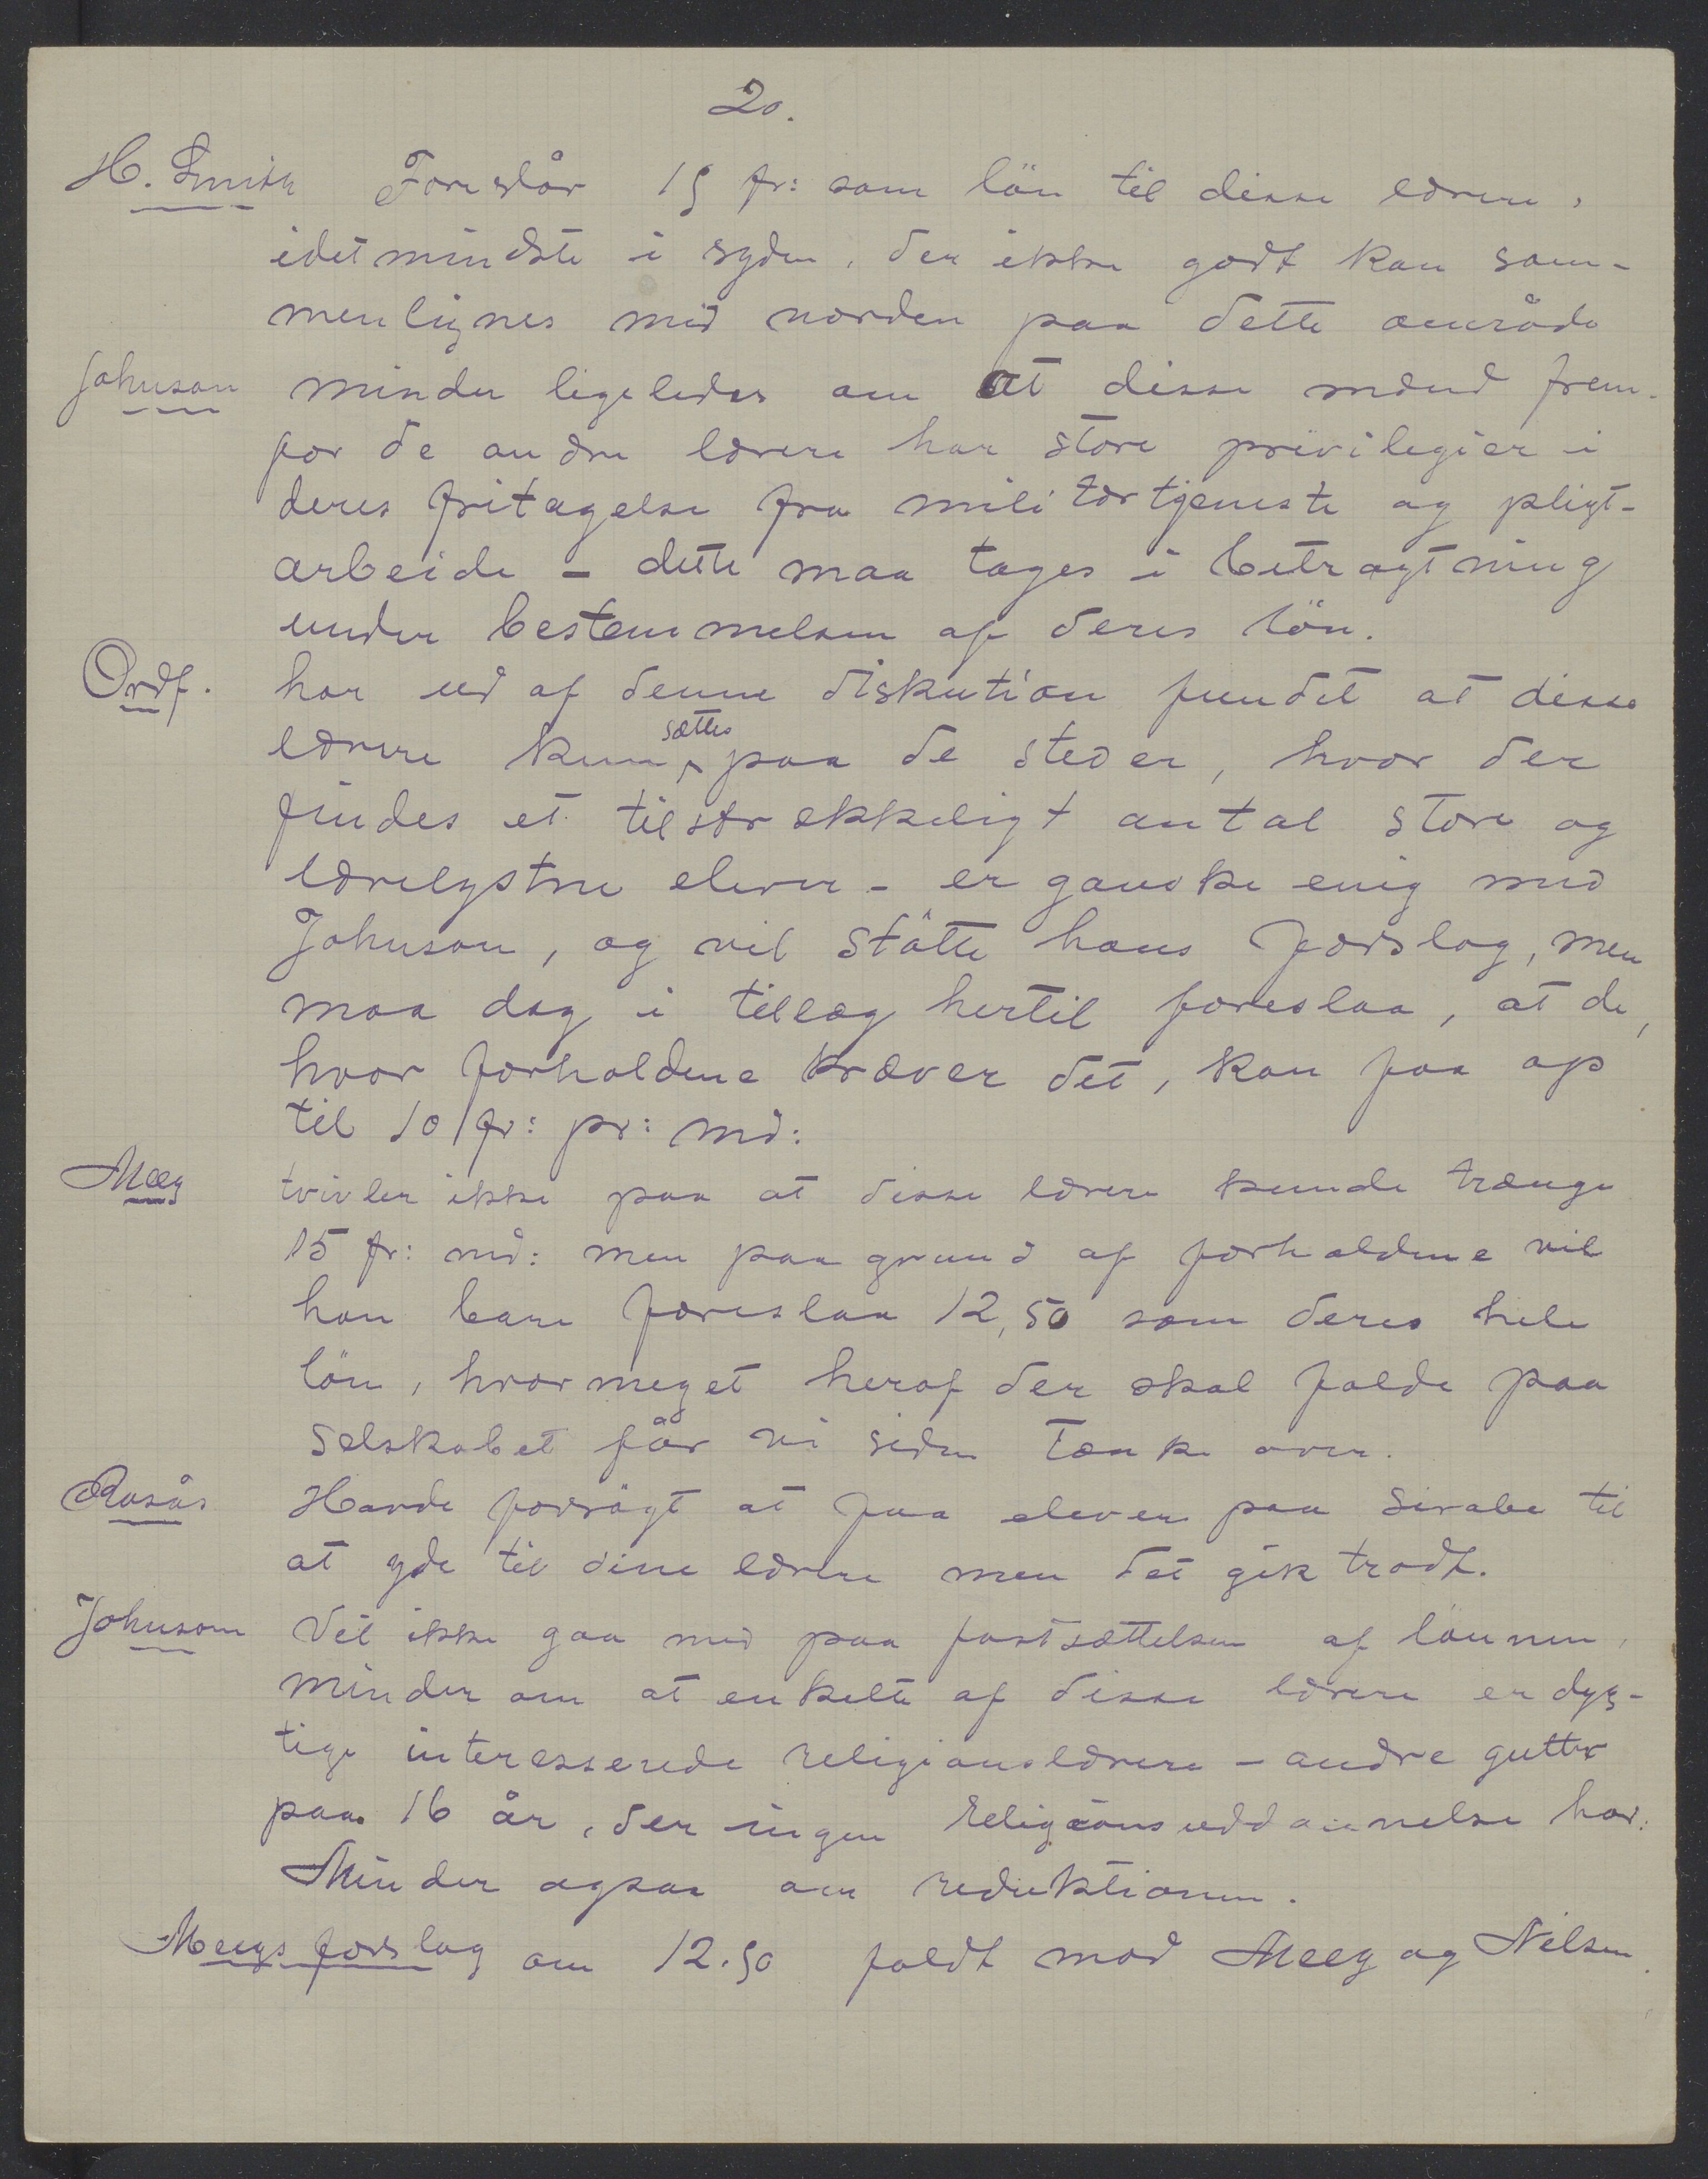 20.
H. Smith Foreslår 15 fr: som lön til disse lærere,
idetmindste i syden, der ikke godt kan sam-
menlignes med norden paa dette område
Johnson minder ligeledes om at disse mænd frem-
for de andre lærere har store privilegier i
deres fritagelse fra militærtjeneste og pligt-
arbeide – dette maa tages i betragtning
under bestemmelsen af deres lön.
Ordf. har ud af denne diskution fundet at disse
lærere kun sættes paa de steder, hvor der
findes et tilstrækkeligt antal store og
lærelystne elever – er ganske enig med
Johnson, og vil stötte hans forslag, men
maa dog i tillæg hertil foreslaa, at de,
hvor forholdene kræver det, kan faa op
til 10 fr: pr: md:
Meeg tvivler ikke paa at disse lærere kunde trænge
15 fr: md: men paa grund af forholdene vil
han bare foreslaa 12,50 som deres hele
lön, hvormeget heraf der skal falde paa
selskabet får vi siden tænke over.
Rosås Havde forsögt at faa elever paa Sirabe til
at yde til sine lærere men det gik trådt.
Johnson Vil ikke gaa med paa fastsættelsen af lönnen,
minder om at enkelte af disse lærere er dyg-
tige interesserede religionslærere – andre gutter
paa 16 år, der ingen religionsuddannelse har.
Minder ogsaa om reduktionen.
Meegs forslag om 12.50 faldt mod Meeg og Nilsen.